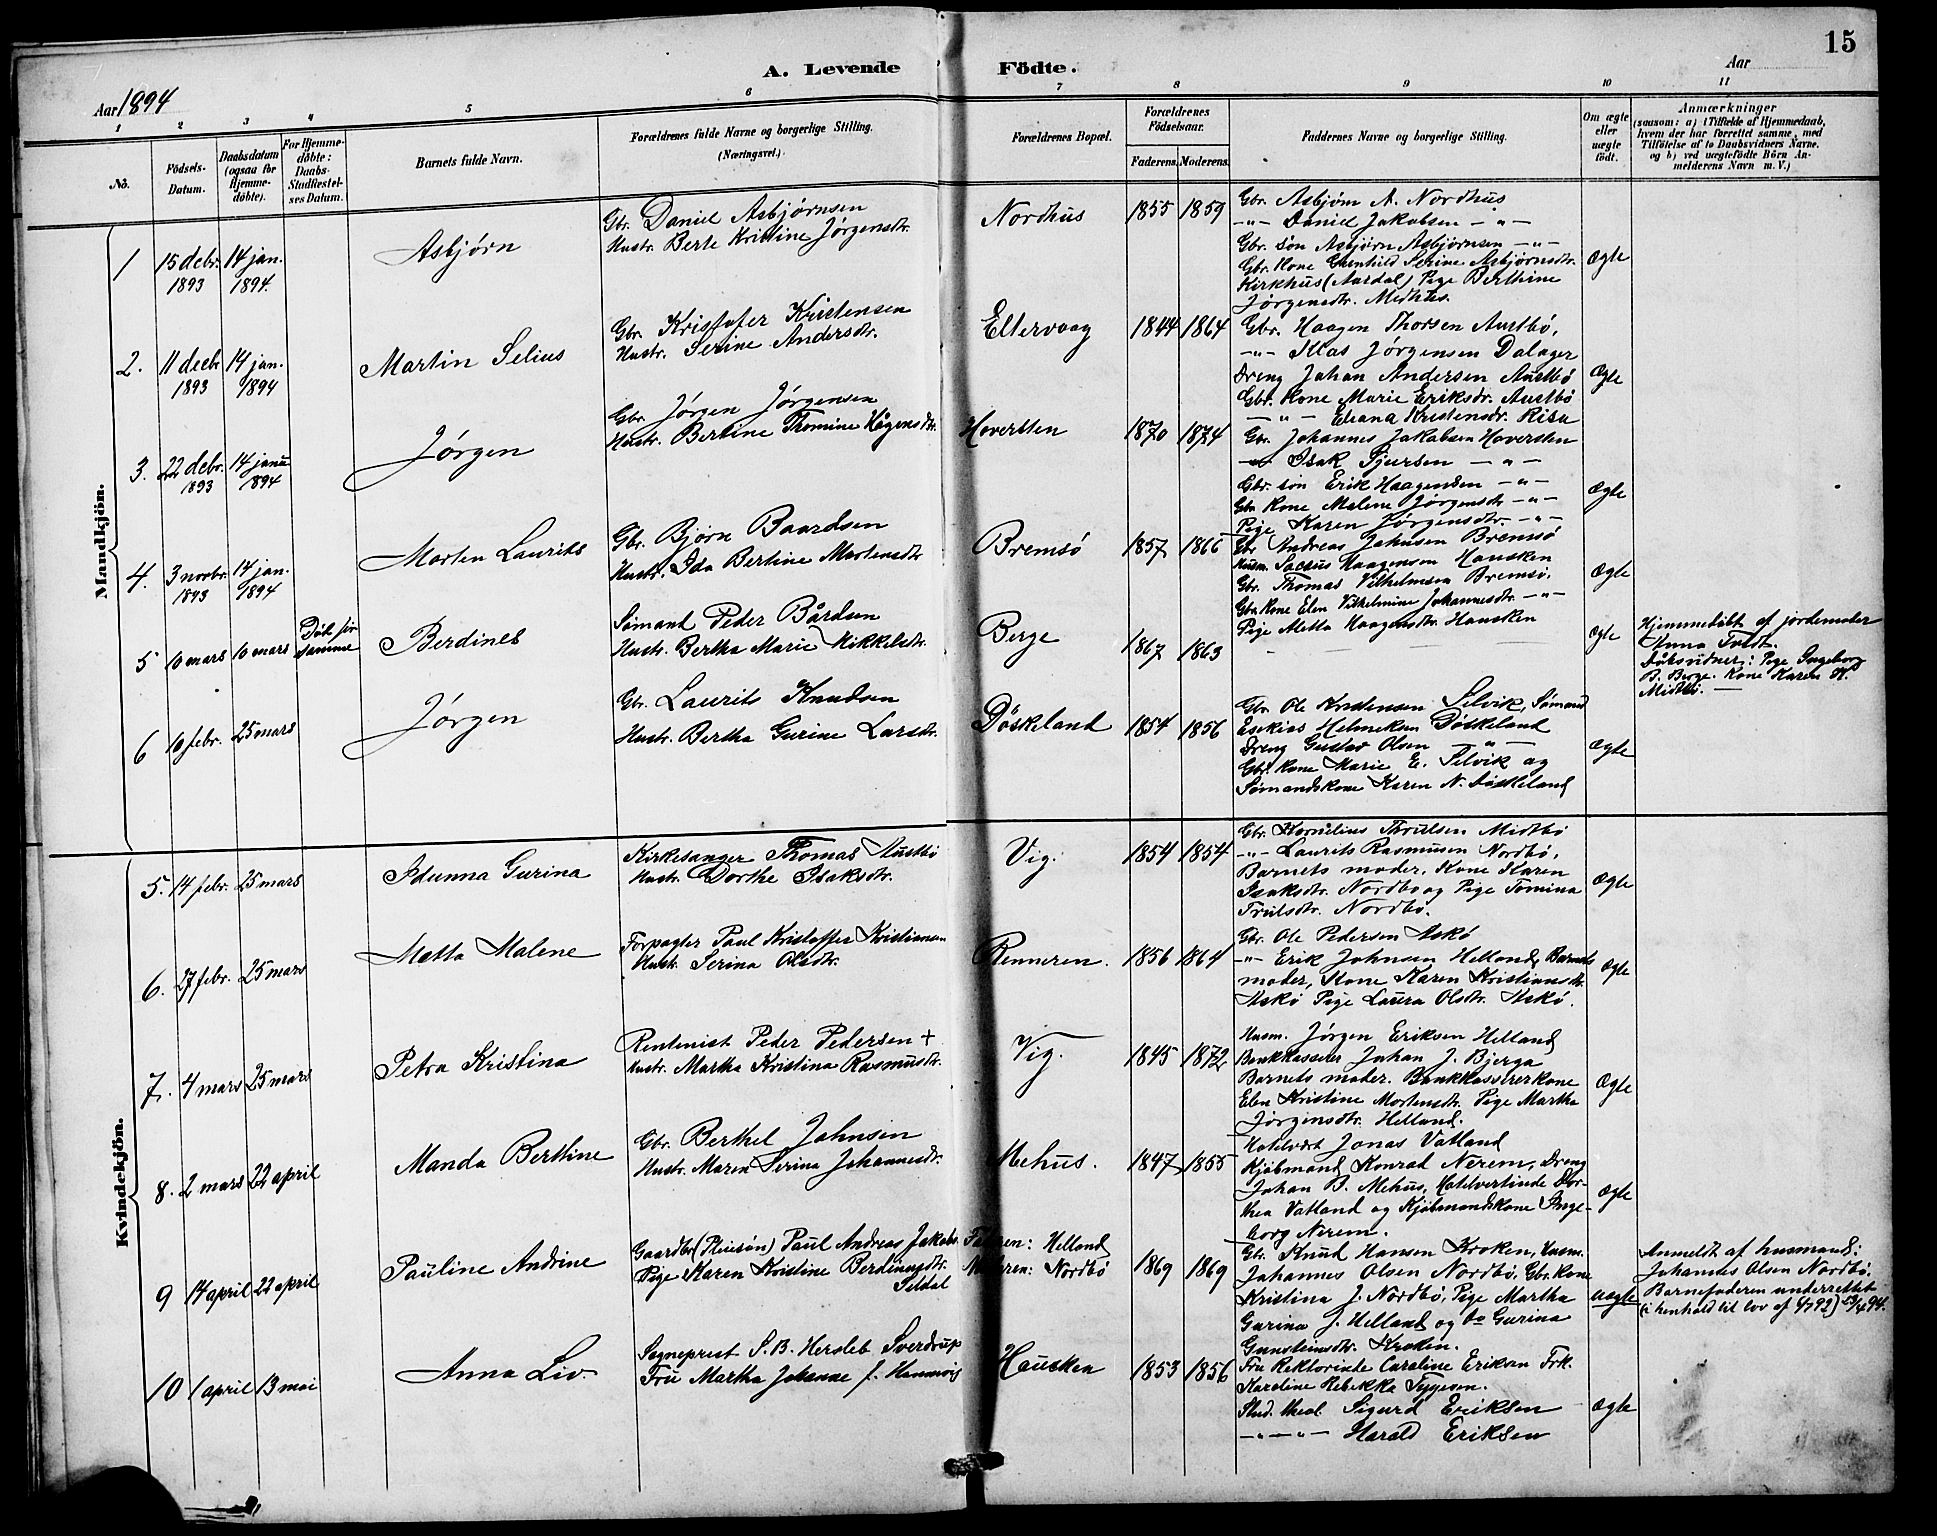 15
A. Levende Födte.
Aar 1894
Aar
1 2 3 4 5 6 7 8 9 10 11
No.
Födsels-Datum.
Daabsdatum (ogsaa for Hjemme-döbte).
For Hjemme-döbte: Daabs-Stadfæstel-ses Datum.
Barnets fulde Navn.
Forældrenes fulde Navne og borgerlige Stilling. (Næringsvei.)
Forældrenes Bopæl.
Forældrenes Födselsaar.
Faderens. Moderens.
Faddernes Navne og borgerlige Stilling.
Om ægte eller uægte födt.
Anmærkninger
(saasom: a) i Tilfælde af Hjemmedaab,
hvem der har forrettet samme, med
Tilföielse af to Daabsvidners Navne.
og b) ved uægtefödte Börn An-
melderens Navn m. V.)
Mandkjön.
1 15 debr. 1893 14 jan. 1894.
Asbjørn
Gbr. Daniel Asbjørnsen
Hustr. Berte Kristine Jørgensdtr.
Nordhus 1855 1859
Gbr. Asbjørn A. Nordhus
-"- Daniel Jakobsen -"-
Gbr. søn Asbjørn Asbjørnsen -"-
Gbr. Kone Gunhild Serine Asbjørnsdtr.
Kirkhus (Aardal) Pige Berthine
Jørgensdtr.
Ægte
2. 11 decbr 1893 14 jan. 1894
Martin Selius
Gbr. Kristofer Kristensen
Hustr. Serine Andersdtr.
Eltervaag 1844 1864
Gbr. Haagen Thorsen Austbö,
-"- Mas Jørgensen Dalager
Dreng Johan Andersen Austbö
Gbr. Kone Marie Eriksdtr. Austbö
-"- Eliana Kristensdtr. Risa
Ægte
3. 22 debr. 1893 14 janu 1894
Jørgen
Gbr. Jørgen Jørgensen
Hustr. Bertine Thomine Hågensdtr.
Hoversten 1870 1874
Gbr. Johannes Jakobsen Hoversten
-"- Isak Sjursen -"-
Gbr. søn Erik Haagensen -"-
Gbr Kone Malene Jørgensdtr -"-
Pige Karen Jørgensdtr. -"-
Ægte
4. 3 novbr. 1893 14 jan. 1894
Morten Laurits
Gbr. Bjørn Baardsen
Hustr. Ida Bertine Mortensdtr
Bremsö 1857 1866
Gbr Andreas Johnsen Bremsö
Husm. Haagensen Hausken
Gbr. Thomas Vilhelmsen Bremsö.
Gbr. Kone Elen Vilhelmine Johannesdtr. -"-
Pige Metta Haagensdtr. Hausken
Ægte
5 10 mars 10 mars
Berdines
Sømand Peder Bårdsen
Hustr. Bertha Marie Mikkelsdtr.
Berge 1867 1863
Ægte
Hjemmedöbt af jordemoder
Anna Tvedt.
Dåbsvidner: Pige Ingeborg
B. Berge. Kone Karen K.
Midtbö. —
6 10 febr. 25 mars
Jørgen
Gbr. Laurits Knudsen
Hustr. Bertha Gurine Larsdtr.
Döskeland 1854 1856
Gbr. Ole Kristensen Selvik, Sømand
Esekias Helmeksen Döskeland
Dreng Gustav Olsen -"-
Gbr. Kone Marie E. Selvik og
Sømandskone Karen N. Döskeland
Ægte
Kvindekjön.
5. 14 febr. 25 mars
Idunna Gurina
Kirkesanger Thomas Austbö
Hustr. Dorthe Isaksdtr.
Vig. 1854 1854
Gbr. Kornelius Thrulsen Midtbö
-"- Laurits Rasmusen Nordbö,
Barnets moder, Kone Karen
Isaksdtr. Nordbö og Pige Tomina
Trulsdtr. Nordbö.
Ægte
6. 27 febr. 25 mars
Metta Malene
Forpagter Paul Kristoffer Kristiansen
Hustr. Serina Olsdtr.
Renneren. 1856 1864
Gbr. Ole Pedersen Askö
-"- Erik Johnsen Helland, Barnets
moder, Kone Karen Kristiansdtr.
Askö Pige Laura Olsdtr. Askö.
Ægte
7. 4 mars 25 mars
Petra Kristina
Rentenist Peder Pedersen +
Hustr. Martha Kristina Rasmusdtr.
Vig. 1845 1872.
Husm. Jørgen Eriksen Helland
Bankkasserer Johan J. Bjerga
Barnets moder. Bankkassererkone
Elen Kristine Mortensdtr. Pige Martha
Jørginsdtr. Helland.
Ægte
8. 2 mars 22 april
Manda Berthine
Gbr. Berthel Johnsen
Hustr. Maren Serina Johannesdtr.
Mehus. 1847 1855
Hotelvært Jonas Vatland
Kjøbmand Konrad Nerem, Dreng
Johan B. Mehus, Hotelvertinde Dor-
thea Vatland og Kjøbmandskone Inge-
borg Nerem.
Ægte
9 14 april 22 april
Pauline Andrine
Gaardbr. (Pleiesøn) Paul Andreas Jakobs.
Pige Karen Kristine Berdinusdtr.
Seldal
Faderen: Helland
Moderen: Nordbö
1869 1869
Gbr. Knud Hansen Kroken, Husm.
Johannes Olsen Nordbö, Gbr. Kone
Kristina J. Nordbö, Pige Martha
Gurina J. Helland og do Gurina
Gunsteinsdtr. Kroken.
uægte
Anmeldt af husmand:
Johannes Olsen Nordbö.
Barnefaderen underrettet
(i henhold til lov af 6/7 92) 23/4 94.
10 1 april 13 mai
Anna Liv.
Sogneprest S. B. Hersleb Sverdrup
Fru Martha Johanne f.
Hausken 1853 1856
Fru Rektorinde Caroline Eriksen Frk.
Karoline Rebekka Tygesen.
Stud. theol. Sigurd Eriksen
-"-"- Harald Eriksen
Ægte